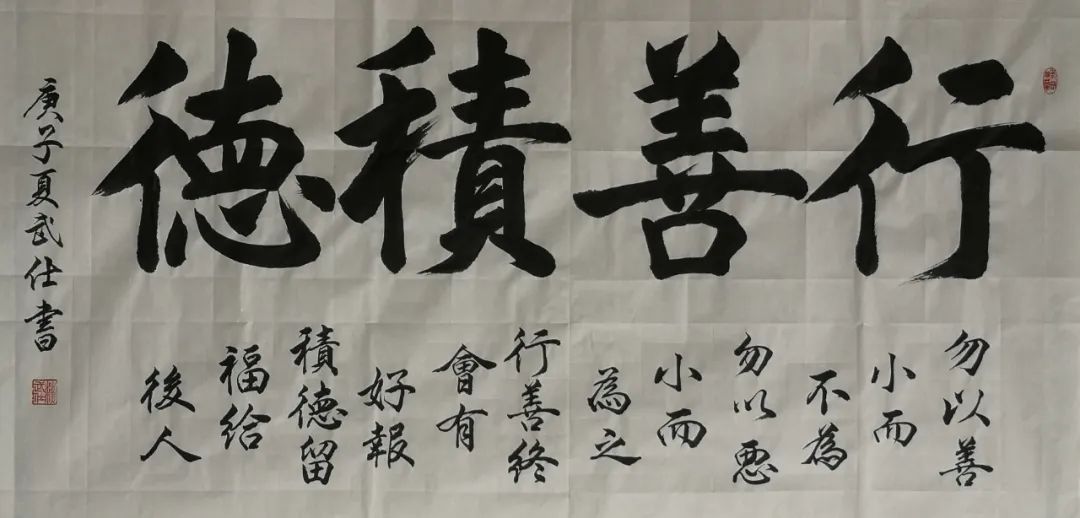 行善積德
勿以善
小而
不為
勿以惡
小而
為之
行善終
會有
好報
積德留
福給
後人
庚子夏武仕書